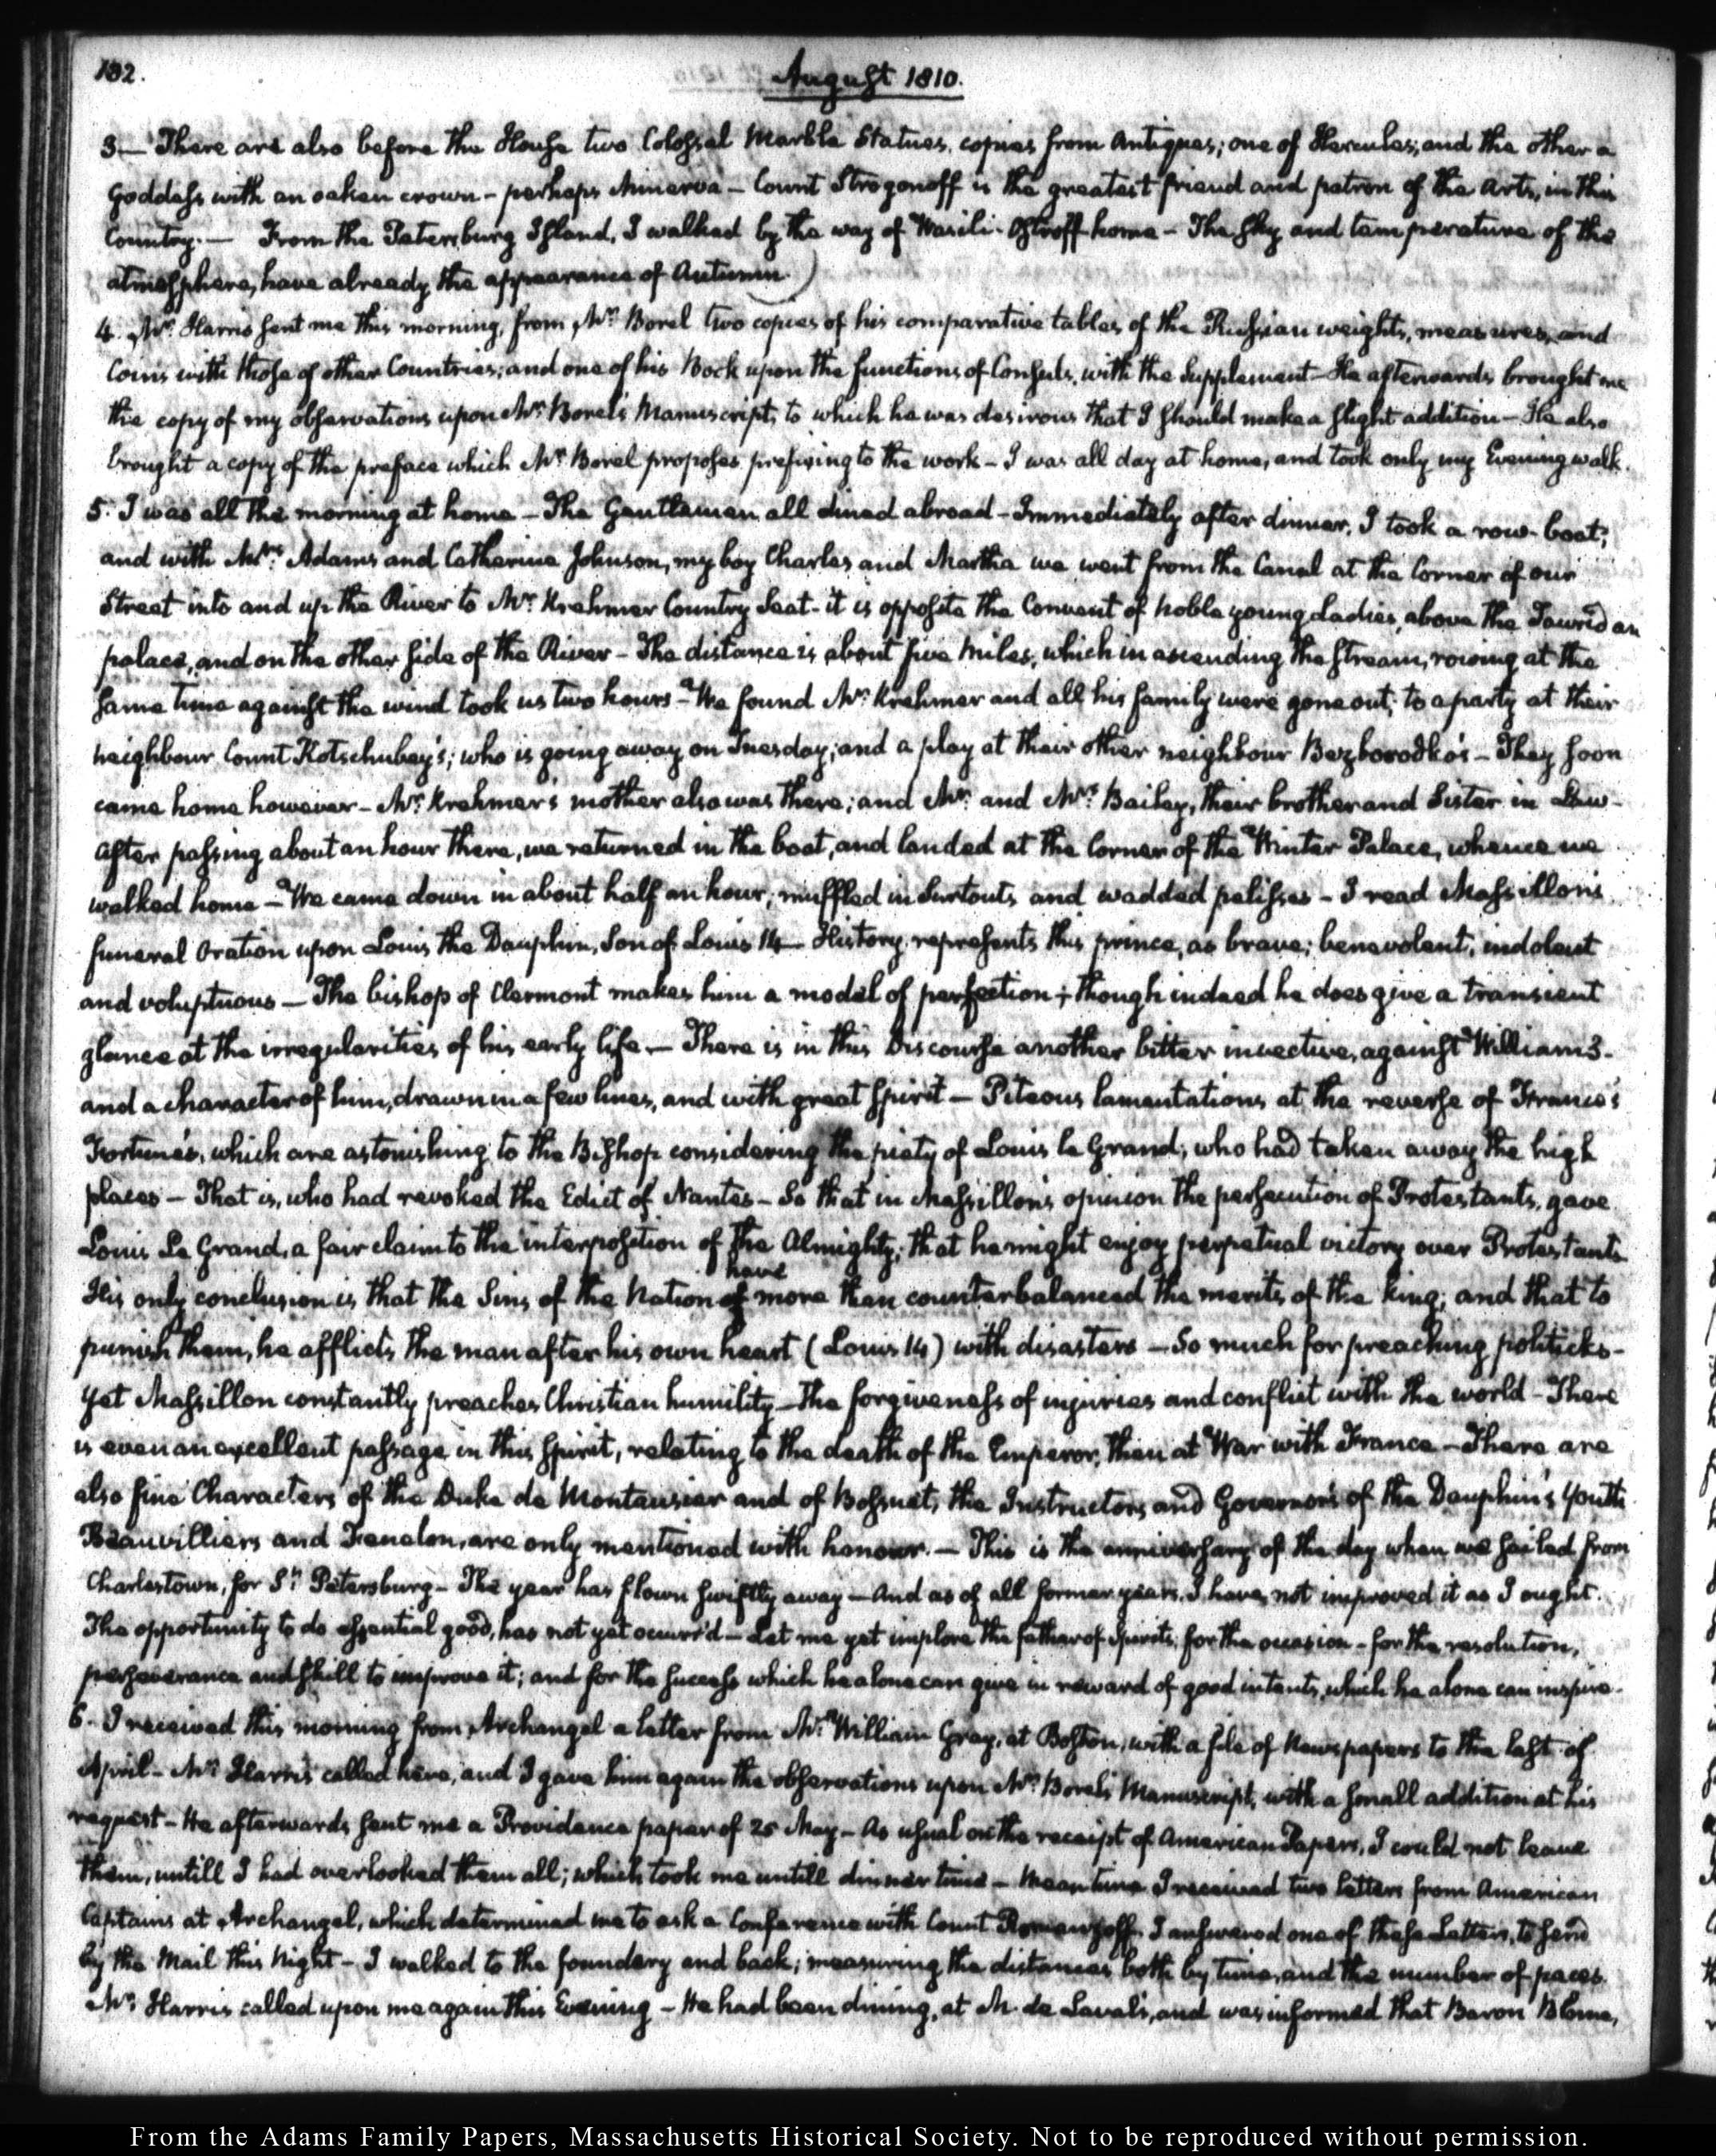 182.
August 1810.
3— There are also before the House two Colossal Marble Statues, copies from Antiques; one of Hercules; and the other a
Goddess with an oaken crown – perhaps Minerva – Count Strogonoff is the greatest friend and patron of the Arts, in this
Country. — From the Petersburg Island, I walked by the way of Wasili-Ostroff home – The sky and temperature of the
atmosphere, have already the appearance of Autumn.
4. Mr. Harris sent me this morning, from Mr. Borel two copies of his comparative tables of the Russian weights, measures, and
Coins with those of other Countries; and one of his Book upon the functions of Consuls, with the Supplement – He afterwards brought me
the copy of my observations upon Mr. Borel's Manuscript, to which he was desirous that I should make a slight addition – He also
brought a copy of the preface which Mr. Borel proposes prefixing to the work – I was all day at home, and took only my Evening walk.
5. I was all the morning at home – The Gentlemen all dined abroad – Immediately after dinner, I took a row-boat;
and with Mrs. Adams and Catherine Johnson, my boy Charles and Martha we went from the Canal at the Corner of our
Street into and up the River to Mr. Krehmer Country Seat – it is opposite the Convent of noble young Ladies, above the Taurid an
palace, and on the other side of the River – The distance is about five miles, which in ascending the stream, rowing at the
same time against the wind took us two hours – We found Mr. Krehmer and all his family were gone out; to a party at their
neighbour Count Kotschubey's; who is going away on Tuesday; and a play at their other neighbour Bezborodko's – They soon
came home however – Mr. Krehmer's mother also was there; and Mr. and Mrs. Bailey, their brother and Sister in Law –
After passing about an hour there, we returned in the boat, and landed at the Corner of the Winter Palace, whence we
walked home – We came down in about half an hour, muffled in Surtouts and wadded pelisses – I read Massillon's
funeral Oration upon Louis the Dauphin, Son of Louis 14 – History represents this prince, as brave; benevolent, indolent
and voluptuous – The bishop of Clermont makes him a model of perfection; though indeed he does give a transient
glance at the irregularities of his early life. – There is in this Discourse another bitter invective, against William 3.
and a character of him, drawn in a few lines, and with great Spirit – Piteous lamentations at the reverse of France's
Fortunes, which are astonishing to the Bishop considering the piety of Louis le Grand; who had taken away the high
places – That is, who had revoked the Edict of Nantes – So that in Massillon's opinion the persecution of Protestants, gave
Louis Le Grand, a fair claim to the interposition of the Almighty; that he might enjoy perpetual victory over Protestants
have
His only conclusion is that the Sins of the Nation more than counterbalanced the merits of the king; and that to
punish them, he afflicts the man after his own heart (Louis 14) with disasters – So much for preaching politicks –
Yet Massillon constantly preaches Christian humility – the forgiveness of injuries and conflict with the world – There
is even an excellent passage in this Spirit, relating to the death of the Emperor, then at War with France – There are
also fine Characters of the Duke de Montausier and of Bossuet, the Instructors and Governors of the Dauphin's Youth.
Beauvilliers and Fenelon, are only mentioned with honour. – This is the anniversary of the day when we sailed from
Charlestown, for St. Petersburg – The year has flown swiftly away – And as of all former years, I have not improved it as I ought.
The opportunity to do essential good, has not yet occurr'd – Let me yet implore the father of Spirits, for the occasion – for the resolution,
perseverance and skill to improve it; and for the success which he alone can give in reward of good intents, which he alone can inspire.
6. I received this morning from Archangel a letter from Mr. William Gray, at Boston, with a file of Newspapers to the last of
April – Mr. Harris called here, and I gave him again the observations upon Mr. Borel's Manuscript, with a small addition at his
request – He afterwards sent me a Providence paper of 25 May – As usual on the receipt of American Papers, I could not leave
them, untill I had overlooked them all; which took me untill dinner time – Meantime I received two letters from American
Captains at Archangel, which determined me to ask a Conference with Count Romanzoff. I answered one of these Letters, to send
by the Mail this Night – I walked to the foundery and back; measuring the distances both by time, and the number of paces.
Mr. Harris called upon me again this Evening – He had been dining, at M. de Laval's, and was informed that Baron Blome,
From the Adams Family Papers, Massachusetts Historical Society. Not to be reproduced without permission.